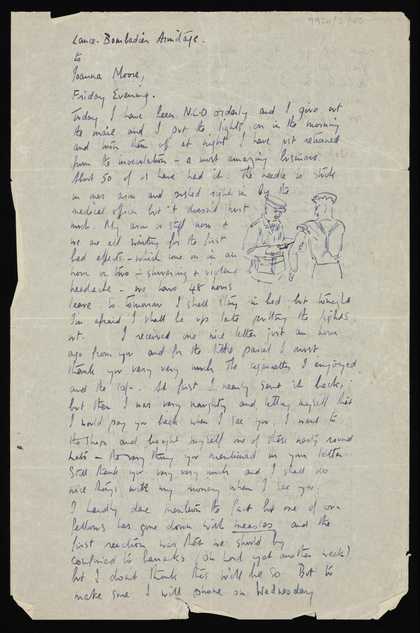 Lance-Bombadier Armitage.
to
Joanna Moore,
Friday Evening.
Today I have been N.C.O orderly and I give out
the mail and I put the lights on in the morning
and turn them off at night. I have just returned
from the inoculation - a most amazing business.
About 50 of us have had it. The needle is stuck
in ones arm and pushed right in by the
medical officer but it doesn't hurt
much. My arm is stiff now &
we are all waiting for the first
bad effects - which come on in an
hour or two - shivering & violent
headache - we have 48 hours
leave so tomorrow I shall stay in bed but tonight
I'm afraid I shall be up late putting the lights
out. I received one nice letter just an hour
ago from you and for the little parcel I must
thank you very very much. The cigarettes I enjoyed
and the At first I nearly sent it back,
but then I was very naughty and telling myself that
I would pay you back when I see you, I went to
the shops and bought myself one of those nasty round
hats - the very thing you mentioned in your letter.
Still thank you very very much and I shall do
nice things with my money when I see you.
I hardly dare mention the fact but one of our
fellows has gone down with measles and the
first reaction was that we should be
confined to barracks (oh Lord yet another week)
but I don't think this will be so. But to
make sure I will phone on Wednesday